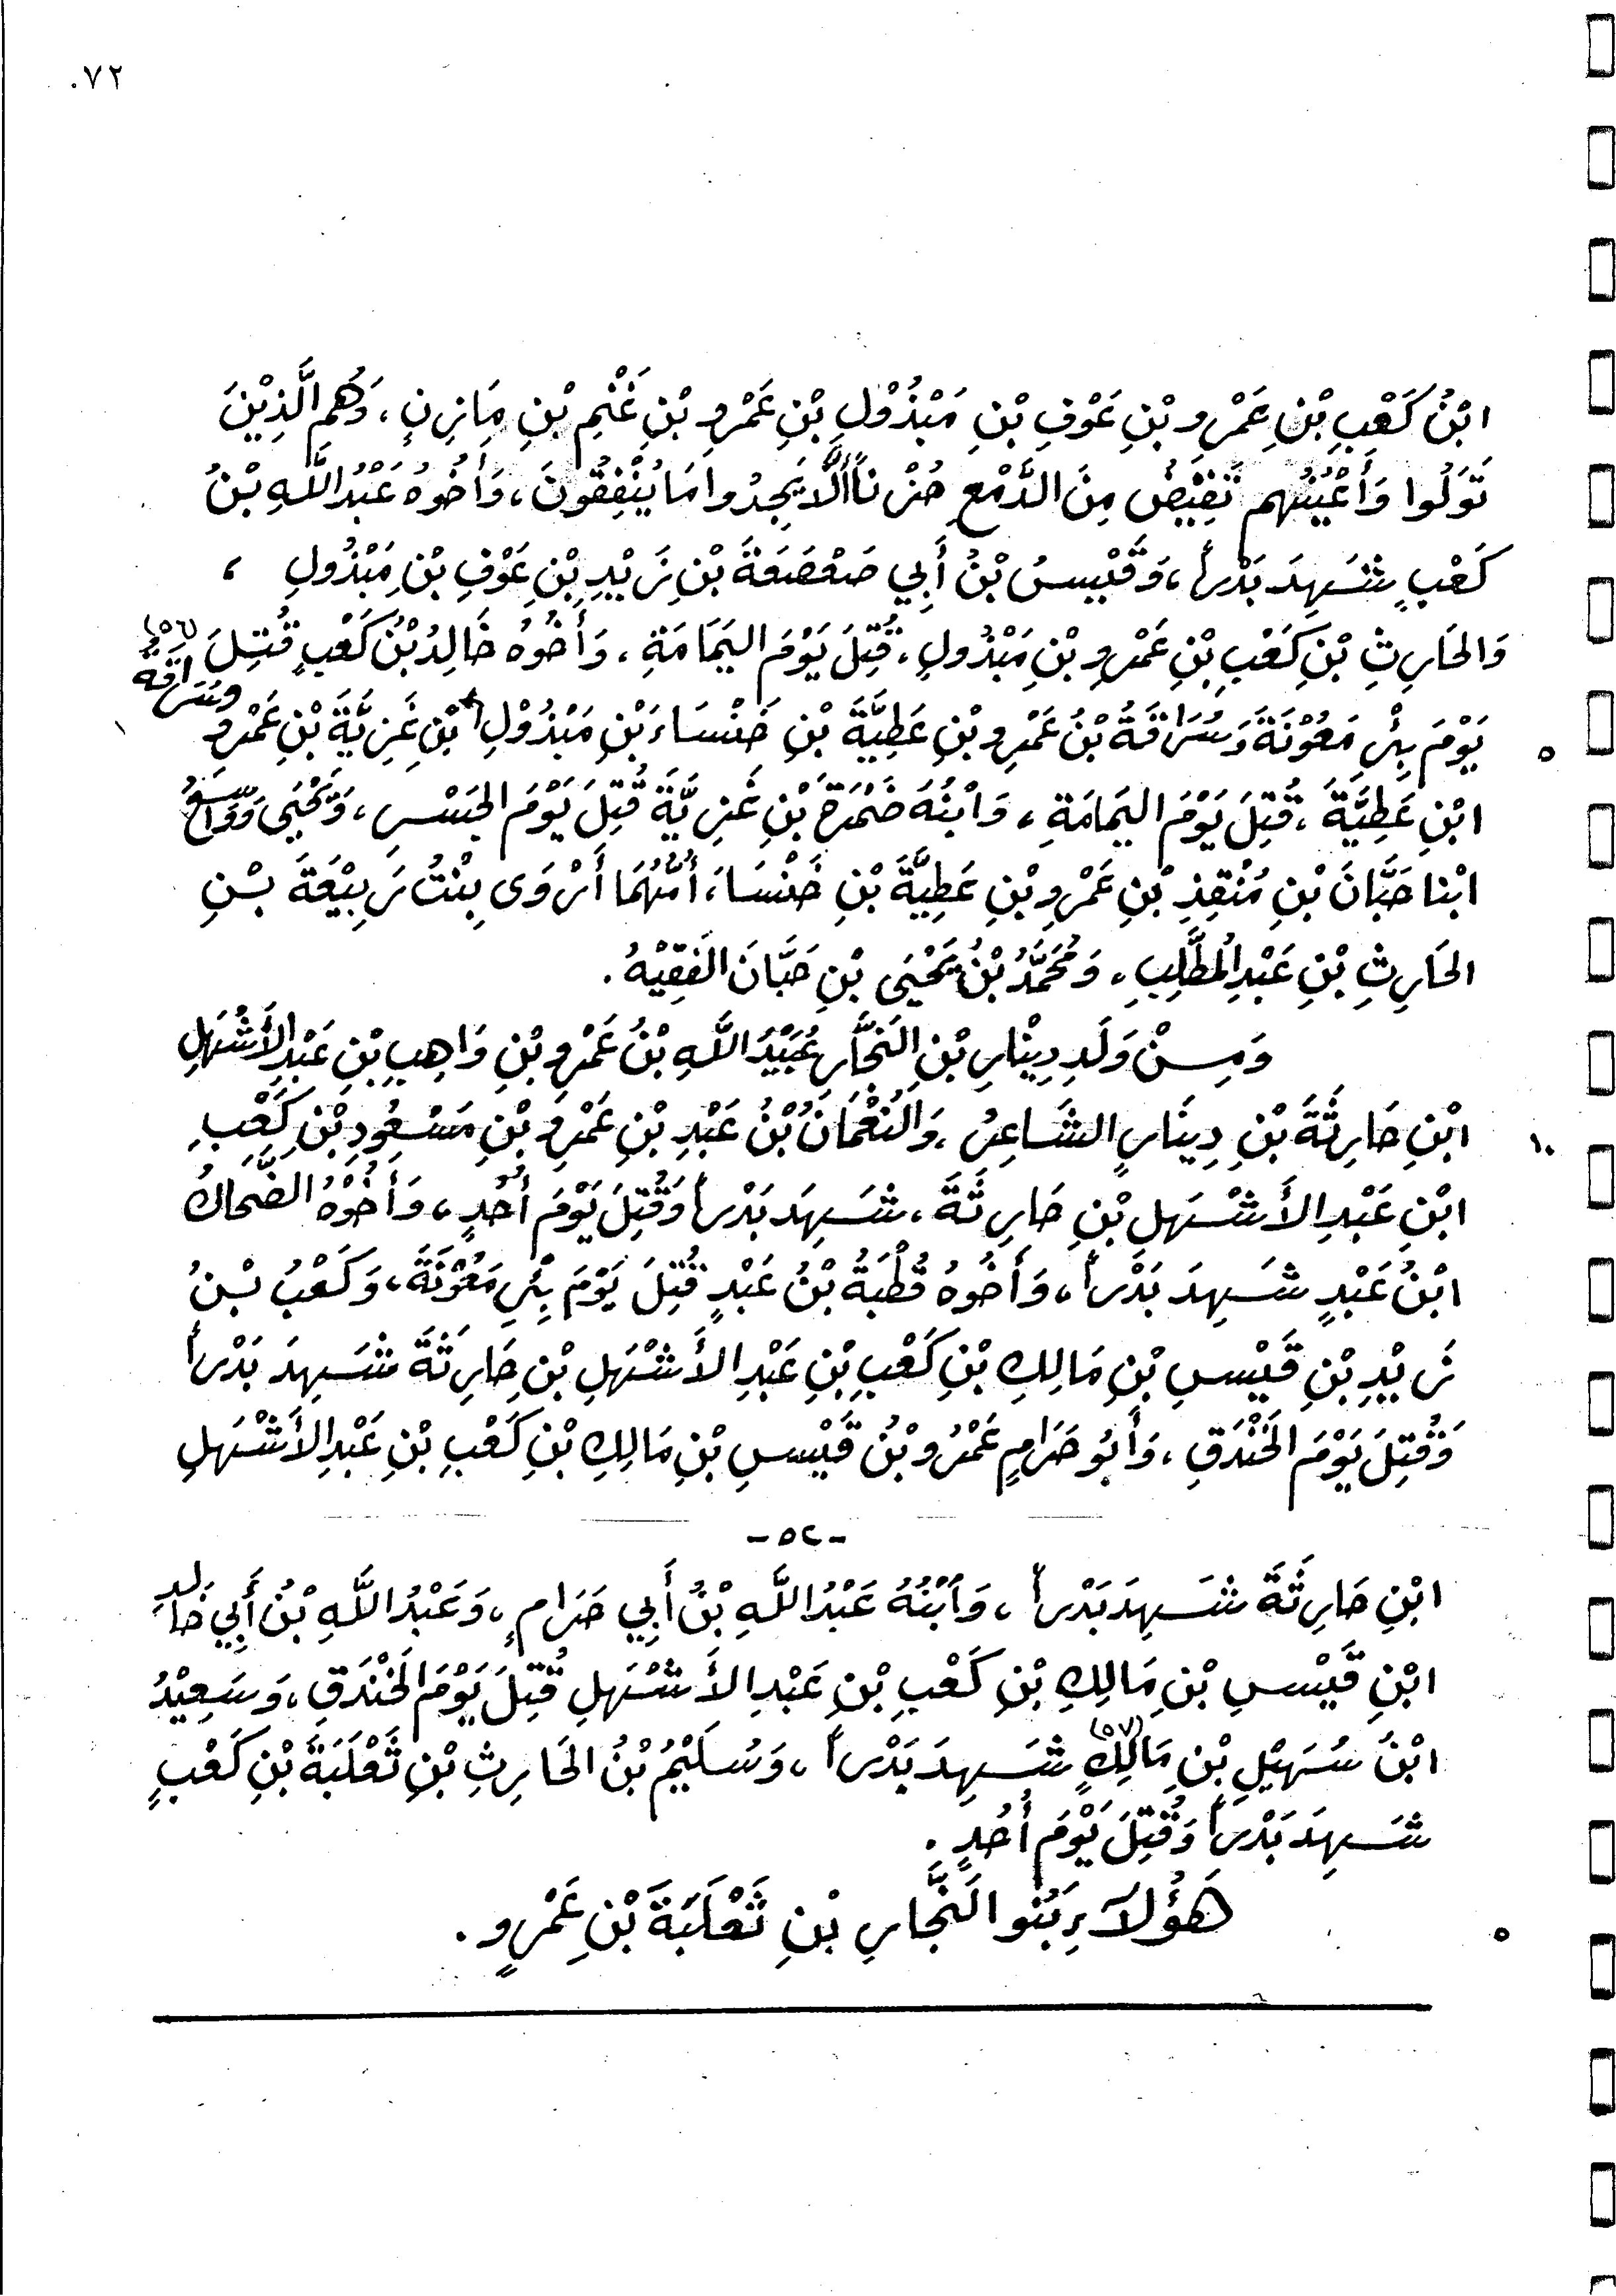 ٧٢.
ابْنُ كَعْبِ بْنِ عَمْرِو بْنِ عَوْفِ بْنِ مَبْذُوْلِ بْنِ عَمْرِو بْنِ غَنْمِ بْنِ مَازِنِ، وَهُم الَّذِيْنَ
تَوَلُوا وَأَعْيُنُهم تَفِيْضُ مِنَ الدَّمْعِ حُزْناً أَلَّا يَجِدُوا مَا يُنْفِقُونَ، وَأَخُوهُ عَبْدُ اللَّهِ بْنُ
كَعْبٍ شَهِدَ بَدْراً، وَقَيْسُ بْنُ أَبِي صَعْصَعَةَ بْنِ زَيْدِ بْنِ عَوْفِ بْنِ مَبْذُولِ ،
وَالحَارِثِ بْنِ كَعْبِ بْنِ عَمْرِو بْنِ مَبْذُولِ، قُتِلَ يَوْمَ اليَمَامَةِ، وَأَخُوهُ خَالِدُ بْنُ كَعْبٍ قُتِلَ (٥٦)
وَسُرَاقَةُ
٥ يَوْمَ بِئْرِ مَعُوْنَةَ وَسُرَاقَةُ بْنُ عَمْرِو بْنِ عَطِيَّةَ بْنِ خَنْسَاءَ بْنِ مَبْذُوْلِ بْنِ غَزِيَّةَ بْنِ عَمْرِو
ابْنِ عَطِيَّةَ، قُتِلَ يَوْمَ اليَمَامَةِ، وَابْنُهُ ضَمْرَةَ بْنِ غَزِيَّةَ قُتِلَ يَوْمَ الجَسْرِ، وَيَحْيَى وَوَاسِعُ
ابْنا حَبَّانَ بْنِ مُنْقِذِ بْنِ عَمْرِو بْنِ عَطِيَّةَ بْنِ خَنْسَاءَ، أُمُّهُمَا أَرْوَى بِنْتُ رَبِيْعَةَ بْنِ
الحَارِثِ بْنِ عَبْدِ المُطَّلِبِ، وَمُحَمَّدُ بْنُ يَحْيَى بْنِ حَبَّانَ الفَقِيْهُ.
وَمِنْ وَلَدِ دِيْنَارِ بْنِ النَّجَّارِ عُبَيْدُ اللَّهِ بْنُ عَمْرِو بْنِ وَاهِبِ بْنِ عَبْدِ الأَشْهَلِ
١٠ ابْنِ حَارِثَةَ بْنِ دِينَارٍ الشَّاعِرُ، وَالنُعْمَانُ بْنُ عَبْدِ بْنِ عَمْرِو بْنِ مَسْعُودِ بْنِ كَعْبِ
ابْنِ عَبْدِ الأَشْهَلِ بْنِ حَارِثَةَ، شَهِدَ بَدْراً وَقُتِلَ يَوْمَ أُحُدٍ، وَأَخُوْهُ الضَّحاكُ
ابْنُ عَبْدٍ شَهِدَ بَدْراً، وَأَخُوهُ قُطْبَةُ بْنُ عَبْدٍ قُتِلَ يَوْمَ بِئْرِ مَعُوْنَةَ، وَكَعْبُ بْنُ
زَيْدِ بْنِ قَيْسِ بْنِ مَالِكِ بْنِ كَعْبِ بْنِ عَبْدِ الأَشْهَلِ بْنِ حَارِثَةَ شَهِدَ بَدْراً
وَقُتِلَ يَوْمَ الخَنْدَقِ، وَأَبُو حَرَامٍ عَمْرُو بْنُ قَيْسِ بْنِ مَالِكِ بْنِ كَعْبِ بْنِ عَبْدِ الأَشْهَلِ
- ٥٢ -
ابْنِ حَارِثَةَ شَهِدَ بَدْراً، وَابْنُهُ عَبْدُ اللَّهِ بْنُ أَبِي حَرَامٍ، وَعَبْدُ اللَّهِ بْنُ أَبِي خَالِدِ
ابْنِ قَيْسِ بْنِ مَالِكِ بْنِ كَعْبِ بْنِ عَبْدِ الأَشْهَلِ قُتِلَ يَوْمَ الخَنْدَقِ، وَسَعِيْدُ
ابْنُ سُهَيْلِ بْنِ مَالِكٍ (٥٧) شَهِدَ بَدْراً، وَسُلَيْمُ بْنُ الحَارِثِ بْنِ ثَعْلَبَةَ بْنِ كَعْبٍ
شَهِدَ بَدْراً وَقُتِلَ يَوْمَ أُحُدٍ.
٥ هَؤُلَاءِ بَنُو النَّجَّارِ بْنِ ثَعْلَبَةَ بْنِ عَمْرِو.